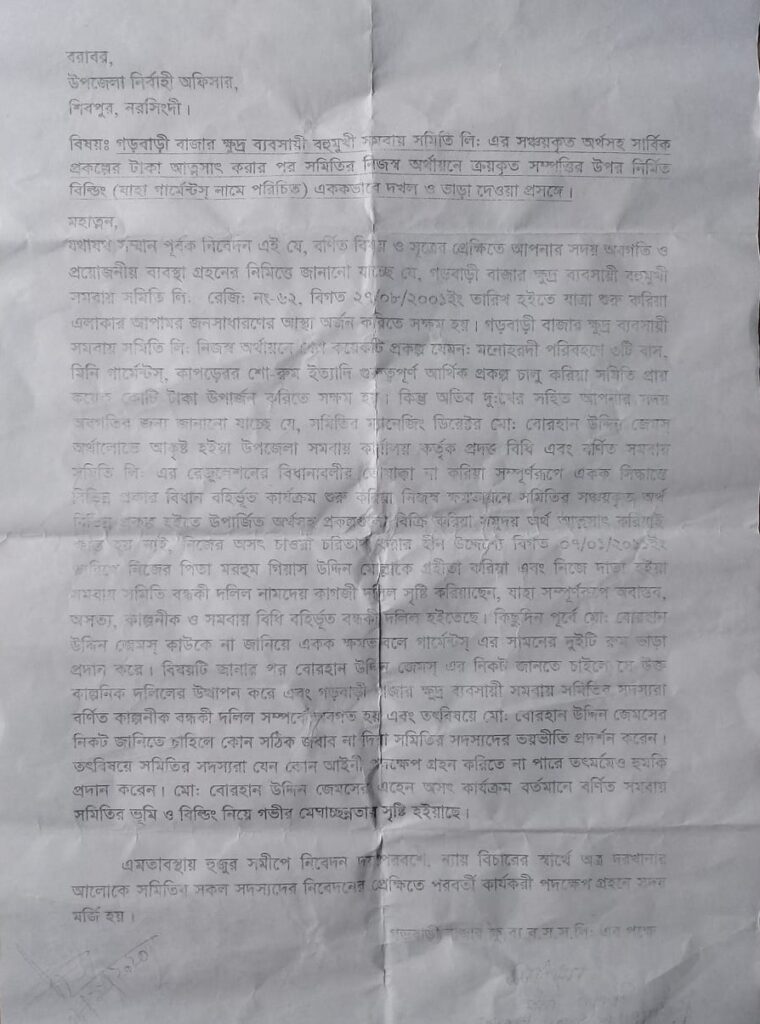 বরাবর,
উপজেলা নির্বাহী অফিসার,
শিবপুর, নরসিংদী।
বিষয়ঃ গড়বাড়ী বাজার ক্ষুদ্র ব্যবসায়ী বহুমুখী সমবায় সমিতি লি: এর সঞ্চয়কৃত অর্থসহ সার্বিক
প্রকল্পের টাকা আত্নসাৎ করার পর সমিতির নিজস্ব অর্থায়নে ক্রয়কৃত সম্পত্তির উপর নির্মিত
বিল্ডিং (যাহা গার্মেন্টস্ নামে পরিচিত) এককভাবে দখল ও ভাড়া দেওয়া প্রসঙ্গে।
মহাত্নন,
যথাযথ সম্মান পূর্বক নিবেদন এই যে, বর্ণিত বিষয় ও সূত্রের প্রেক্ষিতে আপনার সদয় অবগতি ও
প্রয়োজনীয় ব্যবস্থা গ্রহনের নিমিত্তে জানানো যাচ্ছে যে, গড়বাড়ী বাজার ক্ষুদ্র ব্যবসায়ী বহুমুখী
সমবায় সমিতি লি: রেজি: নং-৬২, বিগত ২৭/০৮/২০০১ইং তারিখ হইতে যাত্রা শুরু করিয়া
এলাকার আপামর জনসাধারণের আস্থা অর্জন করিতে সক্ষম হয়। গড়বাড়ী বাজার ক্ষুদ্র ব্যবসায়ী
সমবায় সমিতি লি: নিজস্ব অর্থায়নে বেশ কয়েকটি প্রকল্প যেমন: মনোহরদী পরিবহণে ৩টি বাস,
মিনি গার্মেন্টস্, কাপড়ের শো-রুম ইত্যাদি গুরুত্বপূর্ণ আর্থিক প্রকল্প চালু করিয়া সমিতি প্রায়
কয়েক কোটি টাকা উপার্জন করিতে সক্ষম হয়। কিন্তু অতিব দু:খের সহিত আপনার সদয়
অবগতির জন্য জানানো যাচ্ছে যে, সমিতির ম্যানেজিং ডিরেক্টর মো: বোরহান উদ্দিন জেমস্
অর্থালোভে আকৃষ্ট হইয়া উপজেলা সমবায় কার্যালয় কর্তৃক প্রদত্ত বিধি এবং বর্ণিত সমবায়
সমিতি লি: এর রেজুলেশনের বিধানাবলীর তোয়াক্কা না করিয়া সম্পূর্ণরূপে একক সিদ্ধান্তে
বিভিন্ন প্রকার বিধান বহির্ভূত কার্যক্রম শুরু করিয়া নিজস্ব ক্ষমতায়নে সমিতির সঞ্চয়কৃত অর্থ
বিভিন্ন প্রকল্প হইতে উপার্জিত অর্থসহ প্রকল্পগুলো বিক্রি করিয়া সমুদয় অর্থ আত্নসাৎ করিয়াই
ক্ষান্ত হয় নাই, নিজের অসৎ চাওয়া চরিতার্থ করার হীন উদ্দেশ্যে বিগত ০৭/০১/২০১১ইং
তারিখে নিজের পিতা মরহুম গিয়াস উদ্দিন মোল্লাকে গ্রহীতা করিয়া এবং নিজে দাতা হইয়া
সমবায় সমিতি বন্ধকী দলিল নামদেয় কাগজী দলিল সৃষ্টি করিয়াছেন, যাহা সম্পূর্ণরূপে অবান্তর,
অসত্য, কাল্পনীক ও সমবায় বিধি বহির্ভূত বন্ধকী দলিল হইতেছে। কিছুদিন পূর্বে মো: বোরহান
উদ্দিন জেমস্ কাউকে না জানিয়ে একক ক্ষমতাবলে গার্মেন্টস্ এর সামনের দুইটি রুম ভাড়া
প্রদান করে। বিষয়টি জানার পর বোরহান উদ্দিন জেমস্ এর নিকট জানতে চাইলে সে উক্ত
কাল্পনিক দলিলের উত্থাপন করে এবং গড়বাড়ী বাজার ক্ষুদ্র ব্যবসায়ী সমবায় সমিতির সদস্যরা
বর্ণিত কাল্পনীক বন্ধকী দলিল সম্পর্কে অবগত হয় এবং তৎবিষয়ে মো: বোরহান উদ্দিন জেমসের
নিকট জানিতে চাহিলে কোন সঠিক জবাব না দিয়া সমিতির সদস্যদের ভয়ভীতি প্রদর্শন করেন।
তৎবিষয়ে সমিতির সদস্যরা যেন কোন আইনী পদক্ষেপ গ্রহন করিতে না পারে তৎমর্মেও হুমকি
প্রদান করেন। মো: বোরহান উদ্দিন জেমসের এহেন অসৎ কার্যক্রম বর্তমানে বর্ণিত সমবায়
সমিতির ভূমি ও বিল্ডিং নিয়ে গভীর মেঘাচ্ছন্নতার সৃষ্টি হইয়াছে।
এমতাবস্থায় হুজুর সমীপে নিবেদন দয়া পরবশে, ন্যায় বিচারের স্বার্থে অত্র দরখাস্তের
আলোকে সমিতির সকল সদস্যদের নিবেদনের প্রেক্ষিতে পরবর্তী কার্যকরী পদক্ষেপ গ্রহনে সদয়
মর্জি হয়।
গড়বাড়ী বাজার ক্ষু.ব্য.ব.স.স.লি: এর পক্ষে